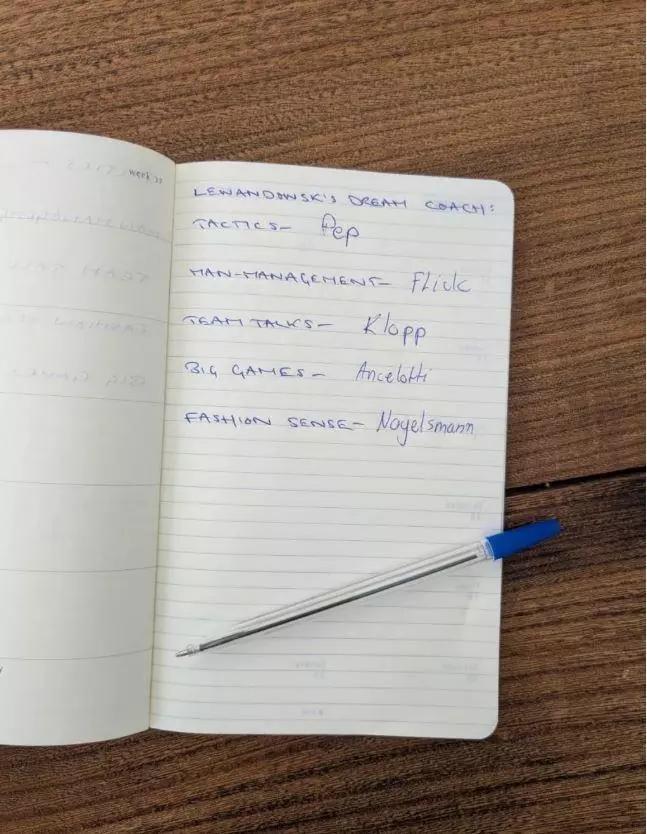 week 22
LEWANDOWSK'S DREAM COACH:
TACTICS- Pep
MAN-MANAGEMENT- Flick
TEAM TALKS- Klopp
BIG GAMES- Ancelotti
FASHION SENSE- Nagelsmann